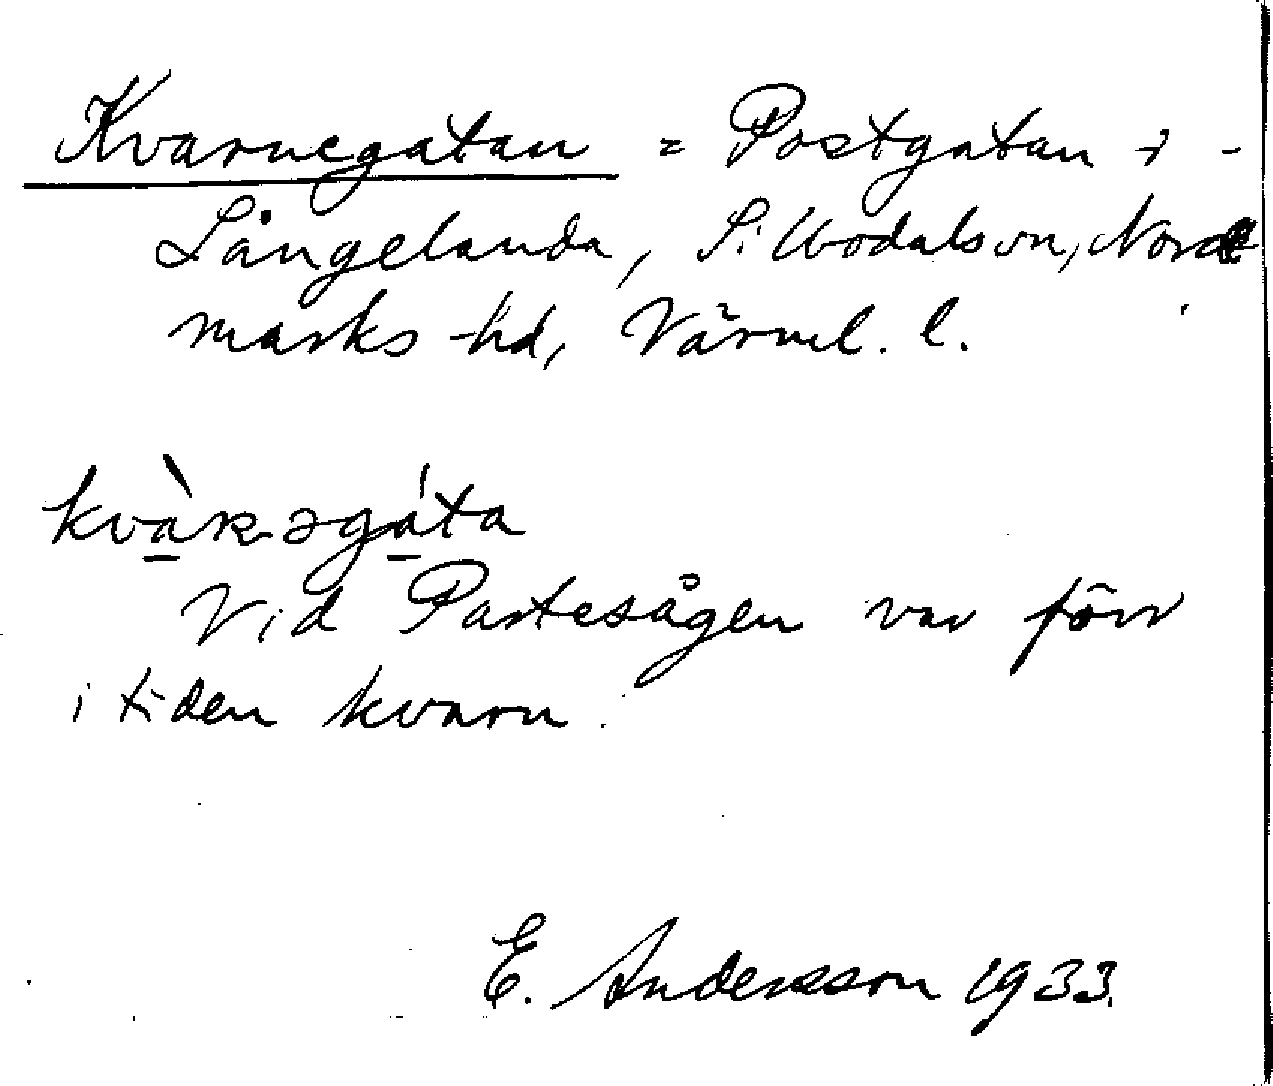 Kvarnegatan = Postgatan i -
Långelanda, S: Nordmarks
marks hd, Värml. l.
kvàʀəgáta
Vid Partesågen var förr
i tiden kvarn.
E. Andersson 1933.